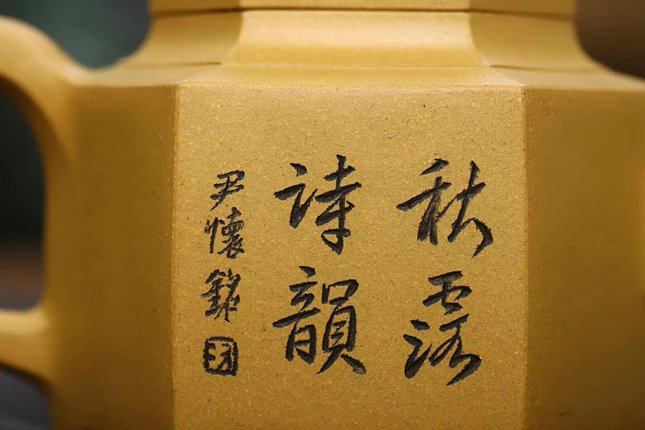 秋露
詩韻
尹懷銘